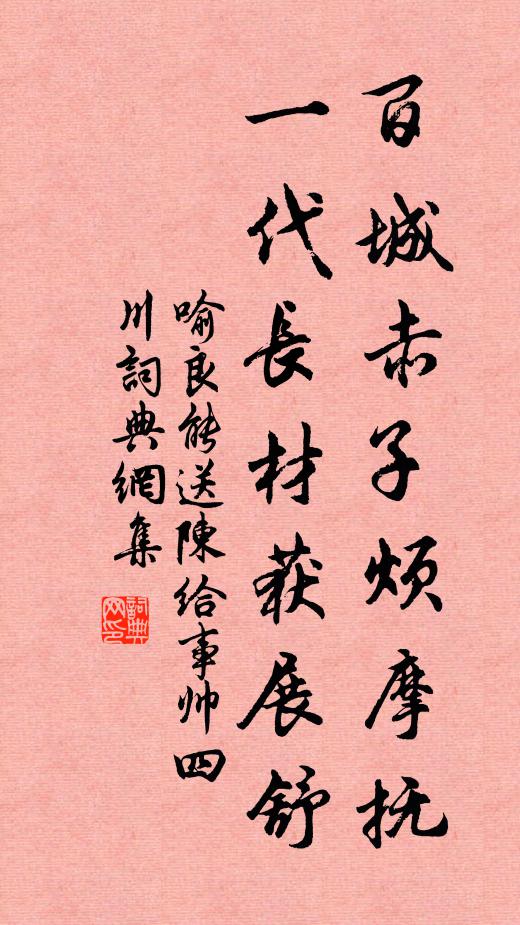 百城赤子烦摩抚
一代長材获展舒
喻良能送陳给事帅四
川詞典網集
詞典网印